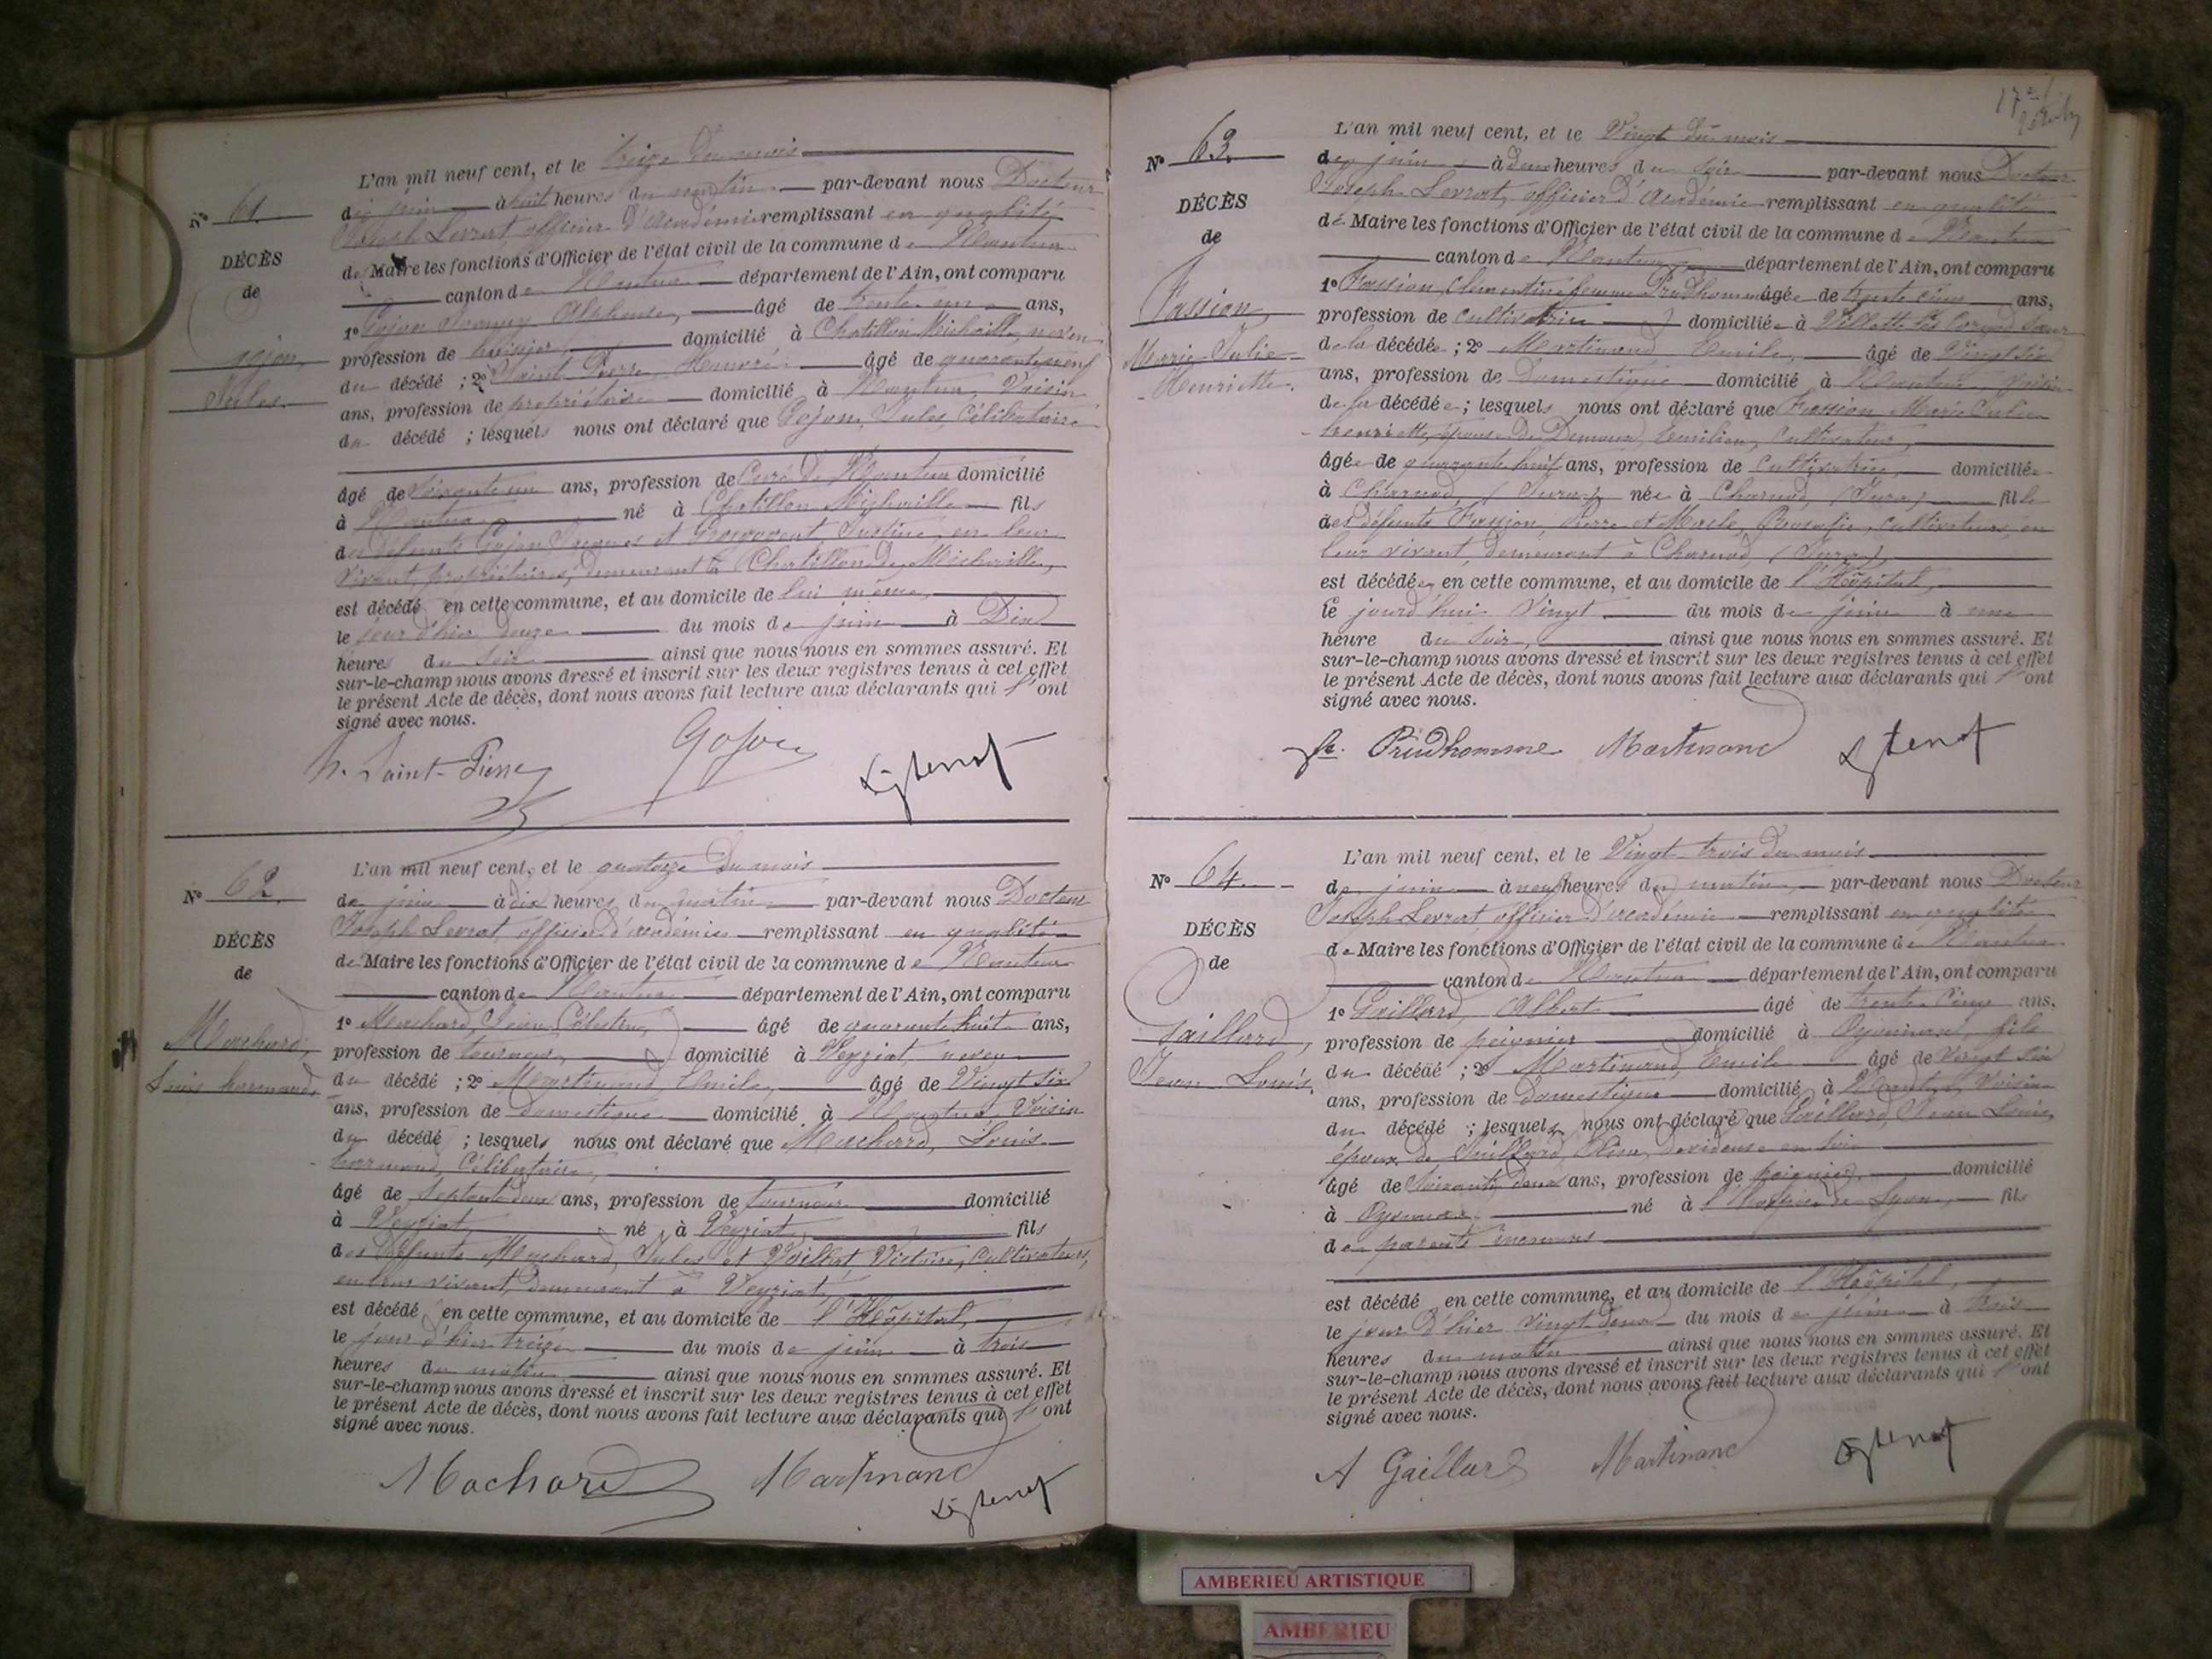 L'an mil neuf cent, et le treize du mois
Nº 61.
de juin à huit heures du matin par-devant nous Docteur
Joseph Levrat, officier d'Académie remplissant en qualité
DÉCÈS
de Maire les fonctions d'Officier de l'état civil de la commune de Nantua
de
canton de Nantua département de l'Ain, ont comparu
1º Gojon Alphonse, âgé de trente un ans,
Gojon,
profession de huissier domicilié à Chatillon Michaille, neveu
Jules.
du décédé ; 2º Saint Pierre, Honoré âgé de quarante neuf
ans, profession de propriétaire domicilié à Nantua, Voisin
du décédé ; lesquels nous ont déclaré que Gojon, Jules, Célibataire
âgé de soixante un ans, profession de Curé de Nantua domicilié
à Nantua né à Chatillon Michaille fils
des défunts Gojon et Justine, en leur
vivant, propriétaires, demeurant à Chatillon de Michaille,
est décédé en cette commune, et au domicile de lui même,
le jour d'hier douze du mois de juin à Dix
heures du soir ainsi que nous nous en sommes assuré. Et
sur-le-champ nous avons dressé et inscrit sur les deux registres tenus à cet effet
le présent Acte de décès, dont nous avons fait lecture aux déclarants qui l'ont
signé avec nous.
h. Saint-Pierre Gojon
L'an mil neuf cent, et le quatorze du mois
Nº 62.
de juin à dix heures du matin par-devant nous Docteur
Joseph Levrat, officier d'académie remplissant en qualité
DÉCÈS
de Maire les fonctions d'Officier de l'état civil de la commune de Nantua
de
canton de Nantua département de l'Ain, ont comparu
Machard,
1º Machard, Jean, Célestin, âgé de quarante huit ans,
profession de tourneur domicilié à Veyziat, neveu
Louis harmand,
du décédé ; 2º Martinand, Emile, âgé de Vingt six
ans, profession de domestique domicilié à Nantua, Voisin
du décédé ; lesquels nous ont déclaré que Machard, Louis
harmand, Célibataire,
âgé de septante deux ans, profession de tourneur domicilié
à Veyziat né à Veyziat fils
des défunts Machard, Jules et Voillat, Victoire, cultivateurs,
en leur vivant, demeurant à Veyziat,
est décédé en cette commune, et au domicile de l'Hôpital,
le jour d'hier treize du mois de juin à trois
heures du matin ainsi que nous nous en sommes assuré. Et
sur-le-champ nous avons dressé et inscrit sur les deux registres tenus à cet effet
le présent Acte de décès, dont nous avons fait lecture aux déclarants qui l'ont
signé avec nous.
Machard Martinand
L'an mil neuf cent, et le Vingt du mois
Nº 63.
de juin à deux heures du soir par-devant nous Docteur
Joseph Levrat, officier d'Académie remplissant en qualité
DÉCÈS
de Maire les fonctions d'Officier de l'état civil de la commune de Nantua
de
canton de Nantua département de l'Ain, ont comparu
Fassion,
1º Fassion, Clémentine femme Prudhomme âgée de trente cinq ans,
profession de cultivatrice domiciliée à Villette soeur
Marie Julie
de la décédée ; 2º Martinand, Emile, âgé de Vingt six
Henriette.
ans, profession de Domestique domicilié à Nantua, voisin
de la décédée ; lesquels nous ont déclaré que Fassion Marie Julie
henriette, épouse de Emilien, Cultivateur,
âgée de quarante huit ans, profession de cultivatrice domiciliée
à Charnod, (Jura) née à Charnod, (Jura) fille
des défunts Fassion, Pierre et cultivateurs, en
leur vivant, demeurant à Charnod (Jura)
est décédée en cette commune, et au domicile de l'Hôpital,
le jourd'hui Vingt du mois de juin à une
heure du soir, ainsi que nous nous en sommes assuré. Et
sur-le-champ nous avons dressé et inscrit sur les deux registres tenus à cet effet
le présent Acte de décès, dont nous avons fait lecture aux déclarants qui l'ont
signé avec nous.
fe. Prudhomme Martinand
L'an mil neuf cent, et le Vingt trois du mois
Nº 64.
de juin à neuf heures du matin par-devant nous Docteur
Joseph Levrat, officier d'académie remplissant en qualité
DÉCÈS
de Maire les fonctions d'Officier de l'état civil de la commune de Nantua
de
canton de Nantua département de l'Ain, ont comparu
Gaillard,
1º Gaillard, Albert âgé de trente cinq ans,
profession de peignier domicilié à Oyonnax, fils
Jean Louis.
du décédé ; 2º Martinand, Emile âgé de vingt six
ans, profession de domestique domicilié à Nantua, Voisin
du décédé ; lesquels nous ont déclaré que Gaillard, Jean Louis,
époux de dévideuse en soie
âgé de soixante deux ans, profession de peignier domicilié
à Oyonnax né à l'hospice de Lyon, fils
de parents inconnus
est décédé en cette commune, et au domicile de l'Hôpital,
le jour d'hier vingt deux du mois de juin à trois
heures du matin ainsi que nous nous en sommes assuré. Et
sur-le-champ nous avons dressé et inscrit sur les deux registres tenus à cet effet
le présent Acte de décès, dont nous avons fait lecture aux déclarants qui l'ont
signé avec nous.
A Gaillard Martinand
AMBERIEU ARTISTIQUE
AMBERIEU